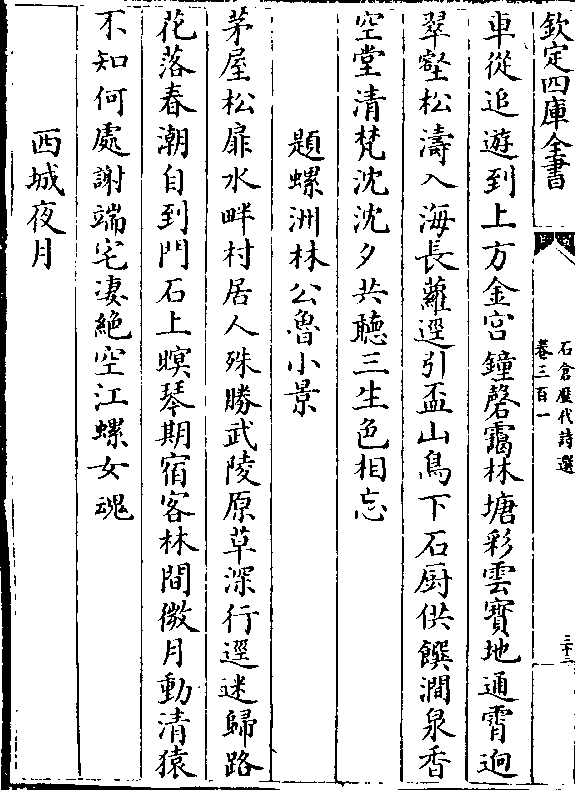 欽定四庫全書
石倉歷代詩選
卷三百一
三十二
車從追遊到上方金宮鐘磬靄林塘彩雲寳地通霄逈
翠壑松濤入海長蘿逕引盃山鳥下石厨供饌澗泉香
空堂清梵沈沈夕共聽三生色相忘
題螺洲林公魯小景
茅屋松扉水畔村居人殊勝武陵原草深行逕迷歸路
花落春潮自到門石上暝琴期宿客林間微月動清猿
不知何處謝端宅凄絶空江螺女魂
西城夜月